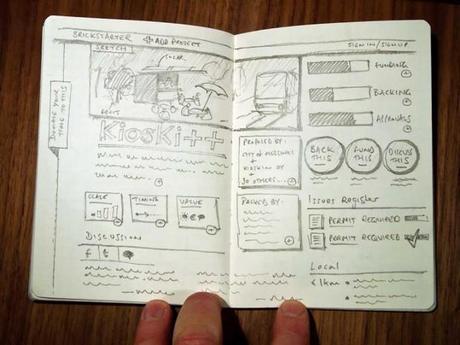 BRICKSTARTER
ADD PROJECT
SIGN IN/SIGN UP
SKETCH
SOLAR
KiosKi++
SCALE
TIMING
VALUE
DISCUSSION
f t
FUNDING
BACKING
APPROVALS
PROPOSED BY:
CITY OF HELSINKI
+
+
30 OTHERS...
BACK THIS
FUND THIS
DISCUSS THIS
BACKED BY:
ISSUES REGISTER
PERMIT REQUIRED
PERMIT REQUIRED
LOCAL
<1km